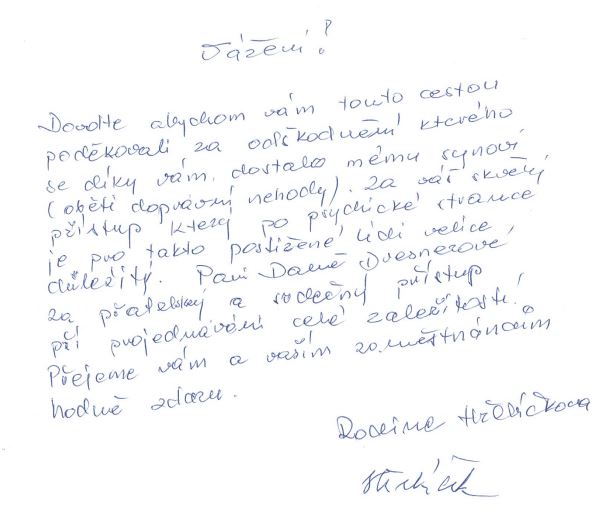 Vážení!
Dovolte abychom vám touto cestou
poděkovali za odškodnění kterého
se díky vám. dostalo mému synovi
(oběti dopravní nehody). Za váš skvělý
přístup který po psychické strance
je pro takto postižené lidi velice
důležitý. Paní Daně Dresnerové
za přátelský a srdečný přístup
při projednávání celé záležitosti!
Přejeme vám a vašim zaměstnancům
hodně zdaru.
Rodina